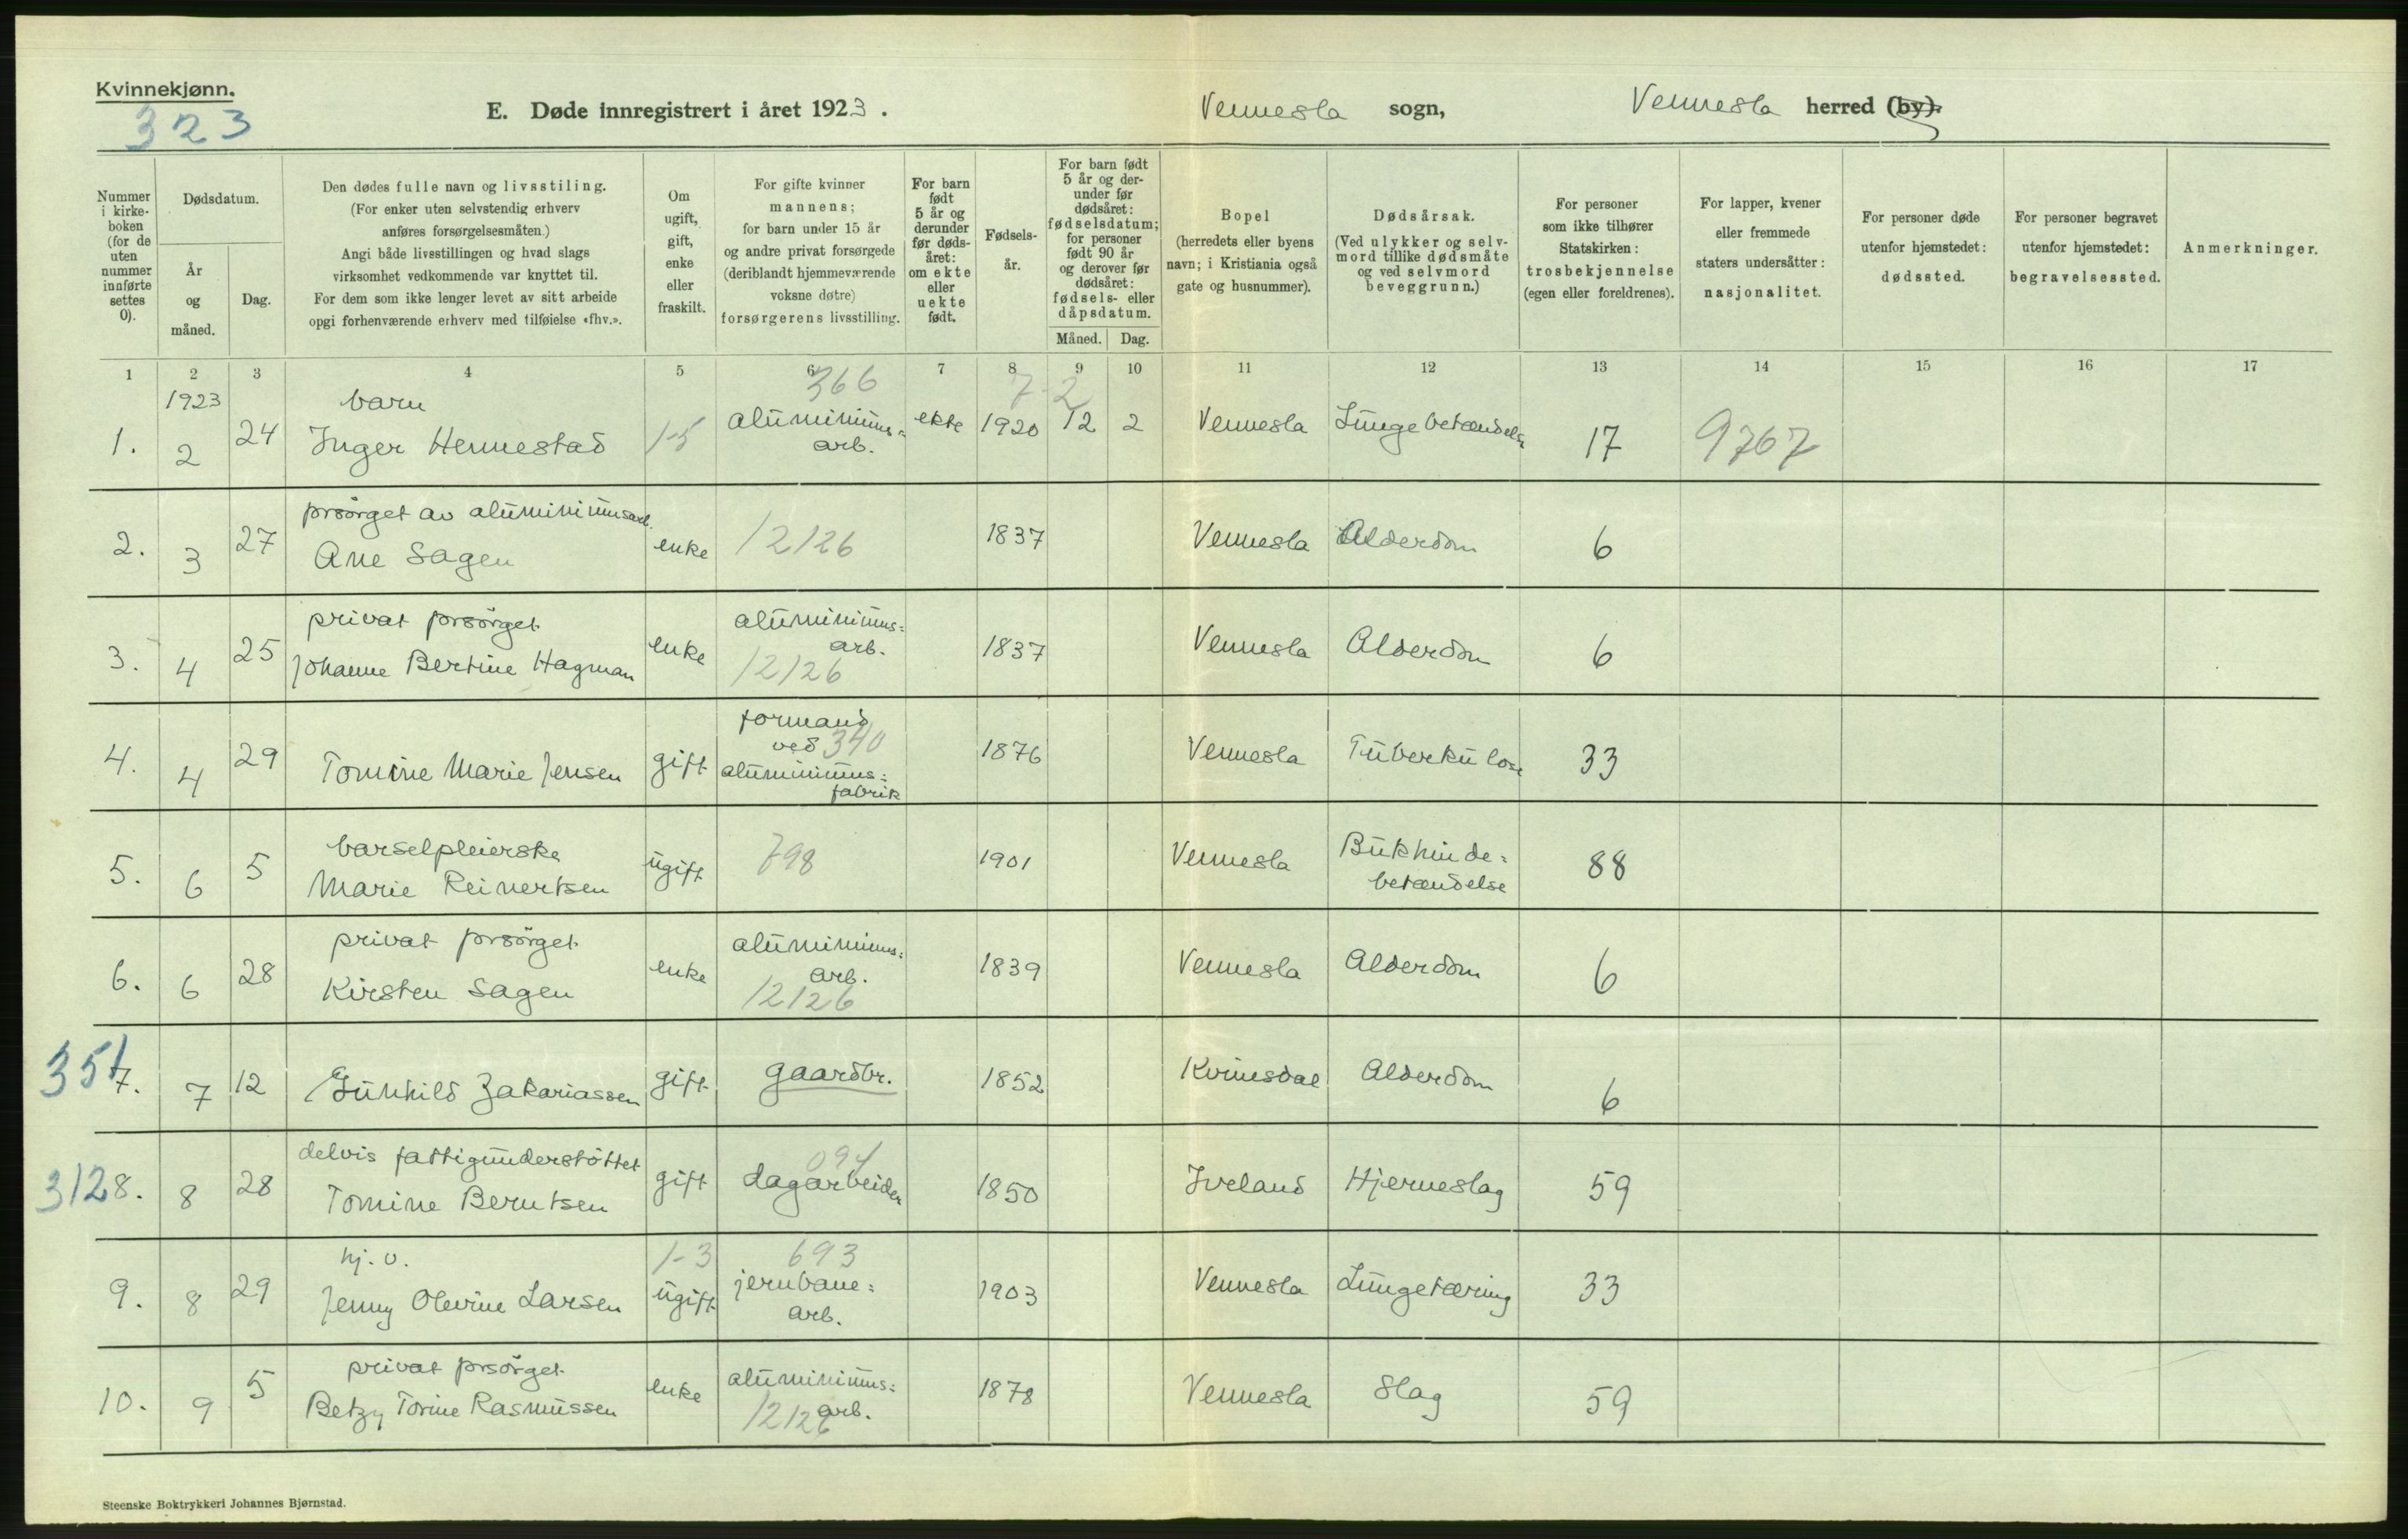 Kvinnekjønn.
323
E. Døde innregistrert i året 1923.
Vennesla sogn,
Vennesla herred (by).
Nummer i kirke-boken (for de uten nummer innførte settes 0).
Dødsdatum.
År og måned.
Dag.
Den dødes fulle navn og livsstiling.
(For enker uten selvstendig erhverv
anføres forsørgelsesmåten.)
Angi både livsstillingen og hvad slags
virksomhet vedkommende var knyttet til.
For dem som ikke lenger levet av sitt arbeide
opgi forhenværende erhverv med tilføielse «fhv.».
Om ugift, gift, enke eller fraskilt.
For gifte kvinner
mannens;
for barn under 15 år
og andre privat forsørgede
(deriblandt hjemmeværende
voksne døtre)
forsørgerens livsstilling.
For barn født 5 år og derunder før døds-året: om ekte eller uekte født.
Fødsels-år.
For barn født 5 år og der-under før dødsåret: fødselsdatum; for personer født 90 år og derover før dødsåret: fødsels- eller dåpsdatum.
Måned. Dag.
Bopel
(herredets eller byens
navn; i Kristiania også
gate og husnummer).
Dødsårsak.
(Ved ulykker og selv-
mord tillike dødsmåte
og ved selvmord
beveggrunn.)
For personer
som ikke tilhører
Statskirken:
trosbekjennelse
(egen eller foreldrenes).
For lapper, kvener
eller fremmede
staters undersåtter:
nasjonalitet.
For personer døde
utenfor hjemstedet:
dødssted.
For personer begravet
utenfor hjemstedet:
begravelsessted.
Anmerkninger.
1 2 3 4 5 6 7 8 9 10 11 12 13 14 15 16 17
1923 barn 366 7-2
1. 2 24 Inger Hennestad 1-5 aluminiums=arb. ekte 1920 12 2 Vennesla Lungebetændelse 17 9767
forsørget av aluminiumsarb.
2. 3 27 Ane Sagen enke 12126 1837 Vennesla Alderdom 6
privat forsørget
3. 4 25 Johanne Bertine Hagman enke aluminiums=arb. 12126 1837 Vennesla Alderdom 6
4. 4 29 Tomine Marie Jensen gift formand ved 340 aluminiums=fabrik 1876 Vennesla Tuberkulose 33
barselpleierske
5. 6 5 Marie Reinertsen ugift 798 1901 Vennesla Bukhinde=betændelse 88
privat forsørget
6. 6 28 Kirsten Sagen enke aluminiums=arb. 12126 1839 Vennesla Alderdom 6
351
7. 7 12 Gunhild Zakariassen gift gaardbr. 1852 Kvinesdal Alderdom 6
delvis fattigunderstøttet 094
312
8. 8 28 Tomine Berntsen gift dagarbeider 1850 Iveland Hjerneslag 59
hj. v. 1-3 693
9. 8 29 Jenny Olevine Larsen ugift jernbane=arb. 1903 Vennesla Lungetæring 33
privat forsørget
10. 9 5 Betzy Torine Rasmussen enke aluminiums=arb. 12126 1878 Vennesla Slag 59
Steenske Boktrykkeri Johannes Bjørnstad.